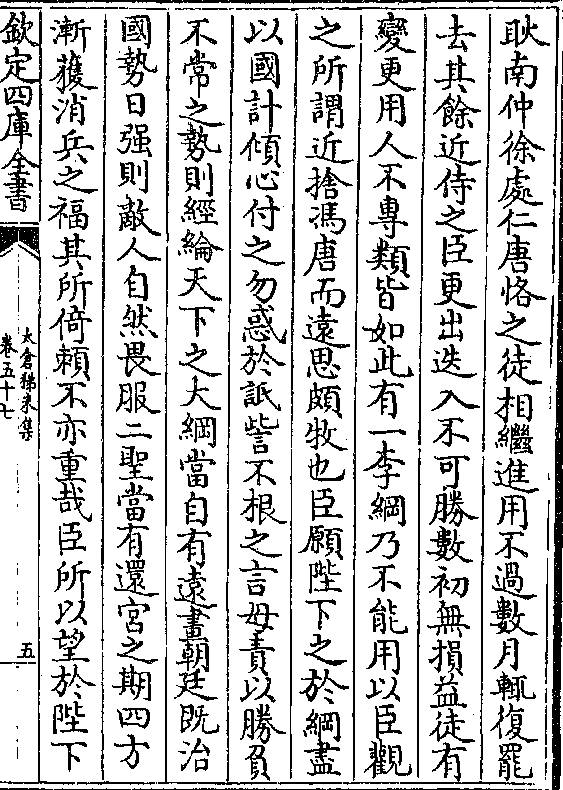 耿南仲徐處仁唐恪之徒相繼進用不過數月輒復罷
去其餘近侍之臣更出迭入不可勝數初無損益徒有
變更用人不專類皆如此有一李綱乃不能用以臣觀
之所謂近捨馮唐而遠思頗牧也臣願陛下之於綱盡
以國計傾心付之勿惑於詆訾不根之言毋責以勝負
不常之勢則經綸天下之大綱當自有遠畫朝廷既治
國勢日强則敵人自然畏服二聖當有還宮之期四方
漸獲消兵之福其所倚賴不亦重哉臣所以望於陛下
欽定四庫全書
太倉稊米集
卷五十七
五